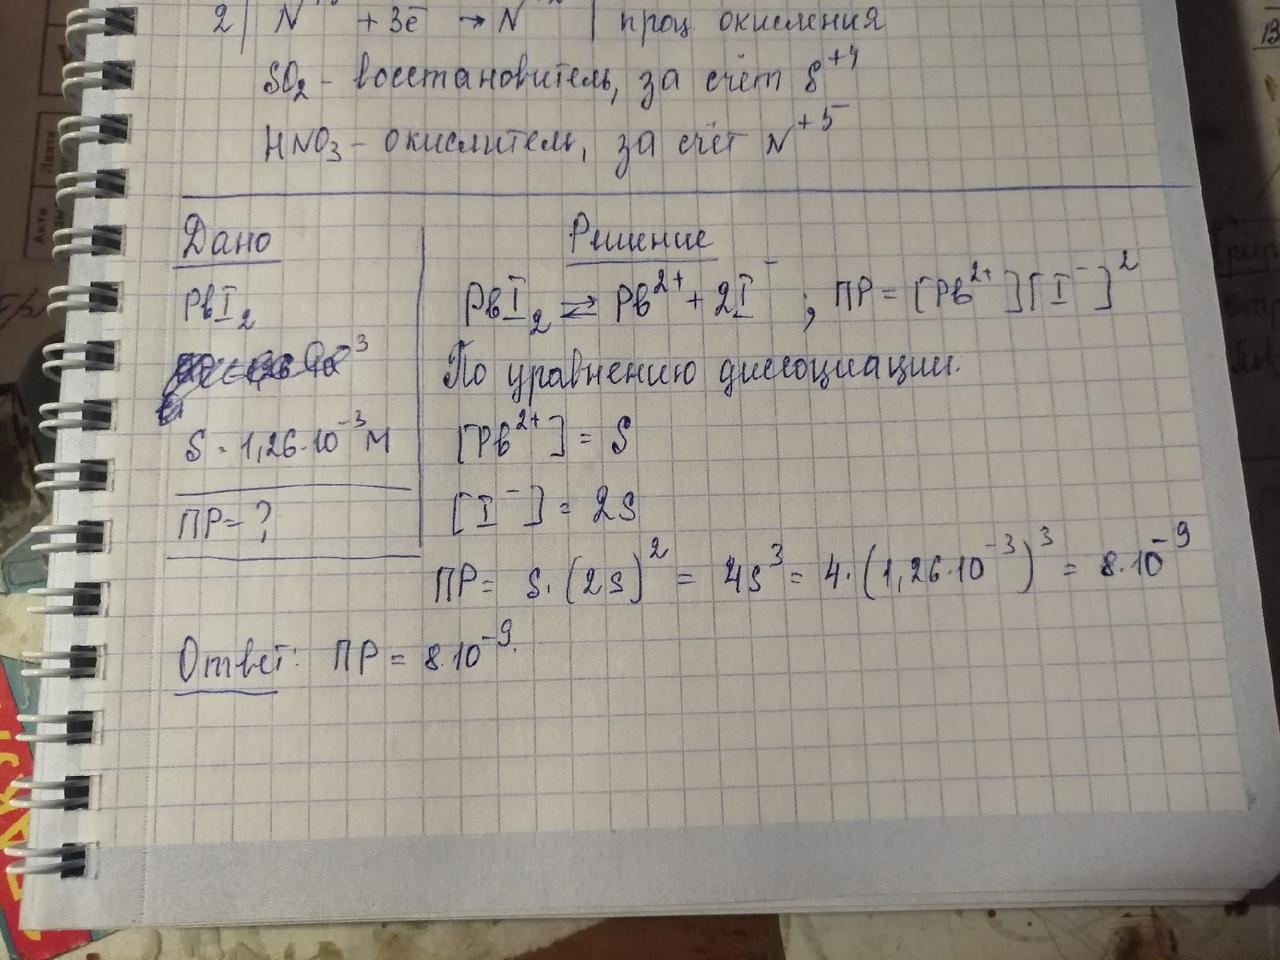 2| N + 3ē → N | проц. окисления
SO₂ - восстановитель, за счёт S⁺⁴
HNO₃ - окислитель, за счёт N⁺⁵
Дано
PbI₂
S = 1,26·10⁻³ М
ПР = ?
Решение
PbI₂ ⇄ Pb²⁺ + 2I⁻ ; ПР = [Pb²⁺][I⁻]²
По уравнению диссоциации.
[Pb²⁺] = S
[I⁻] = 2S
ПР = S·(2S)² = 4S³ = 4·(1,26·10⁻³)³ = 8·10⁻⁹
Ответ: ПР = 8·10⁻⁹.